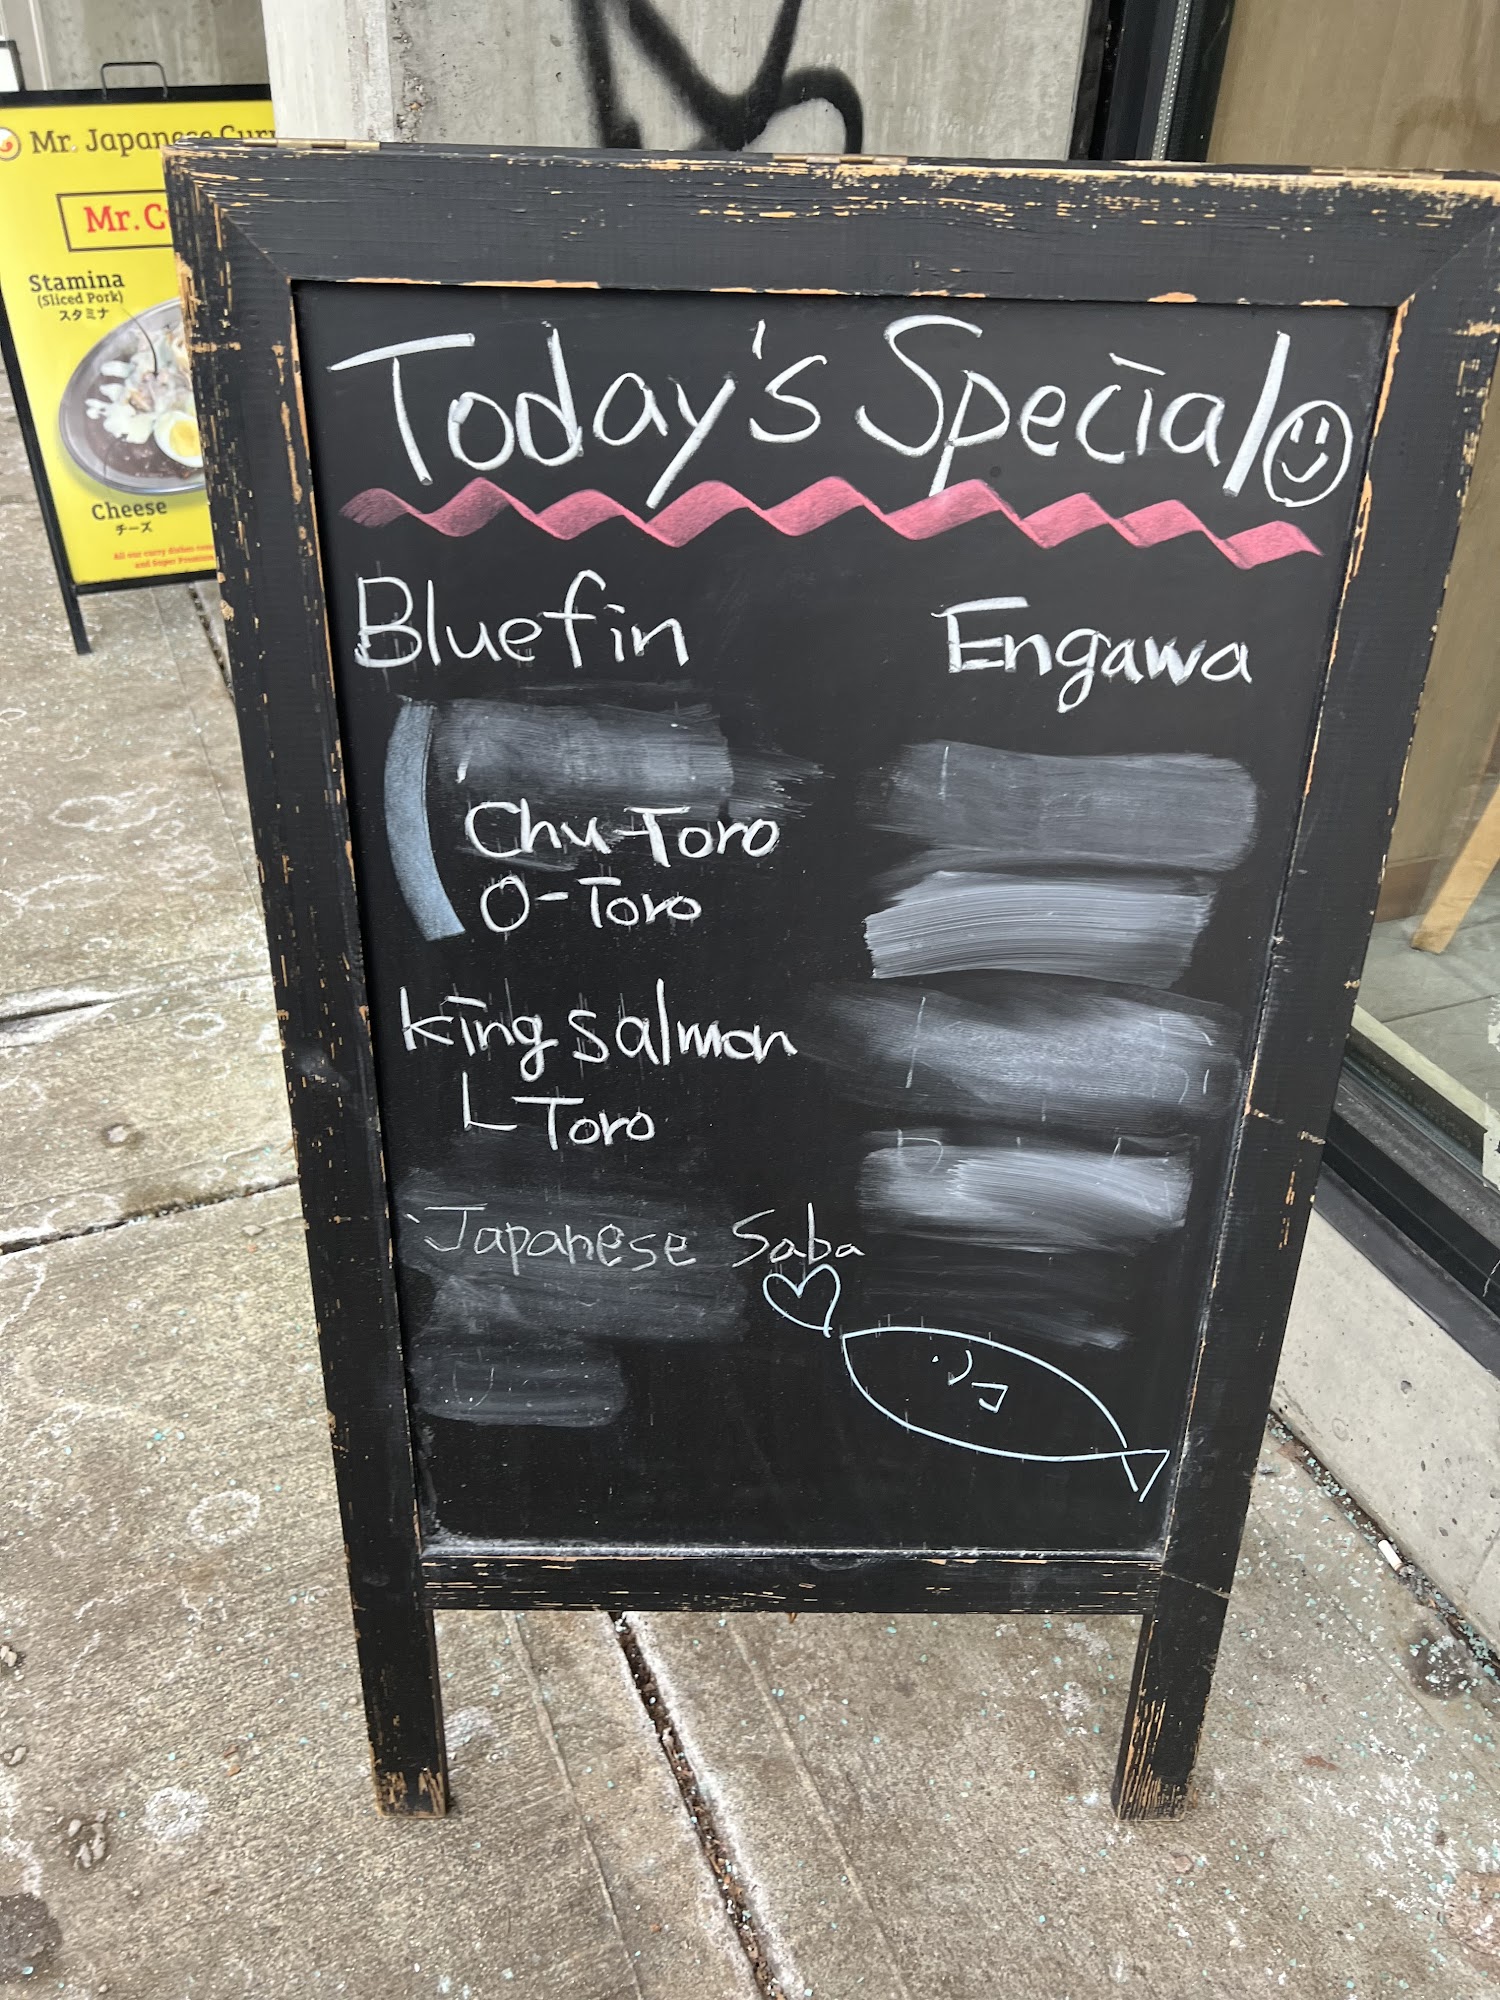 Mr. Japanese Curr
Mr. C
Stamina
(Sliced Pork)
スタミナ
Cheese
チーズ
All our curry dishes
and Super Premium
Today's Special
Bluefin
Chu-Toro
O-Toro
King Salmon
Toro
Japanese Saba
Engawa